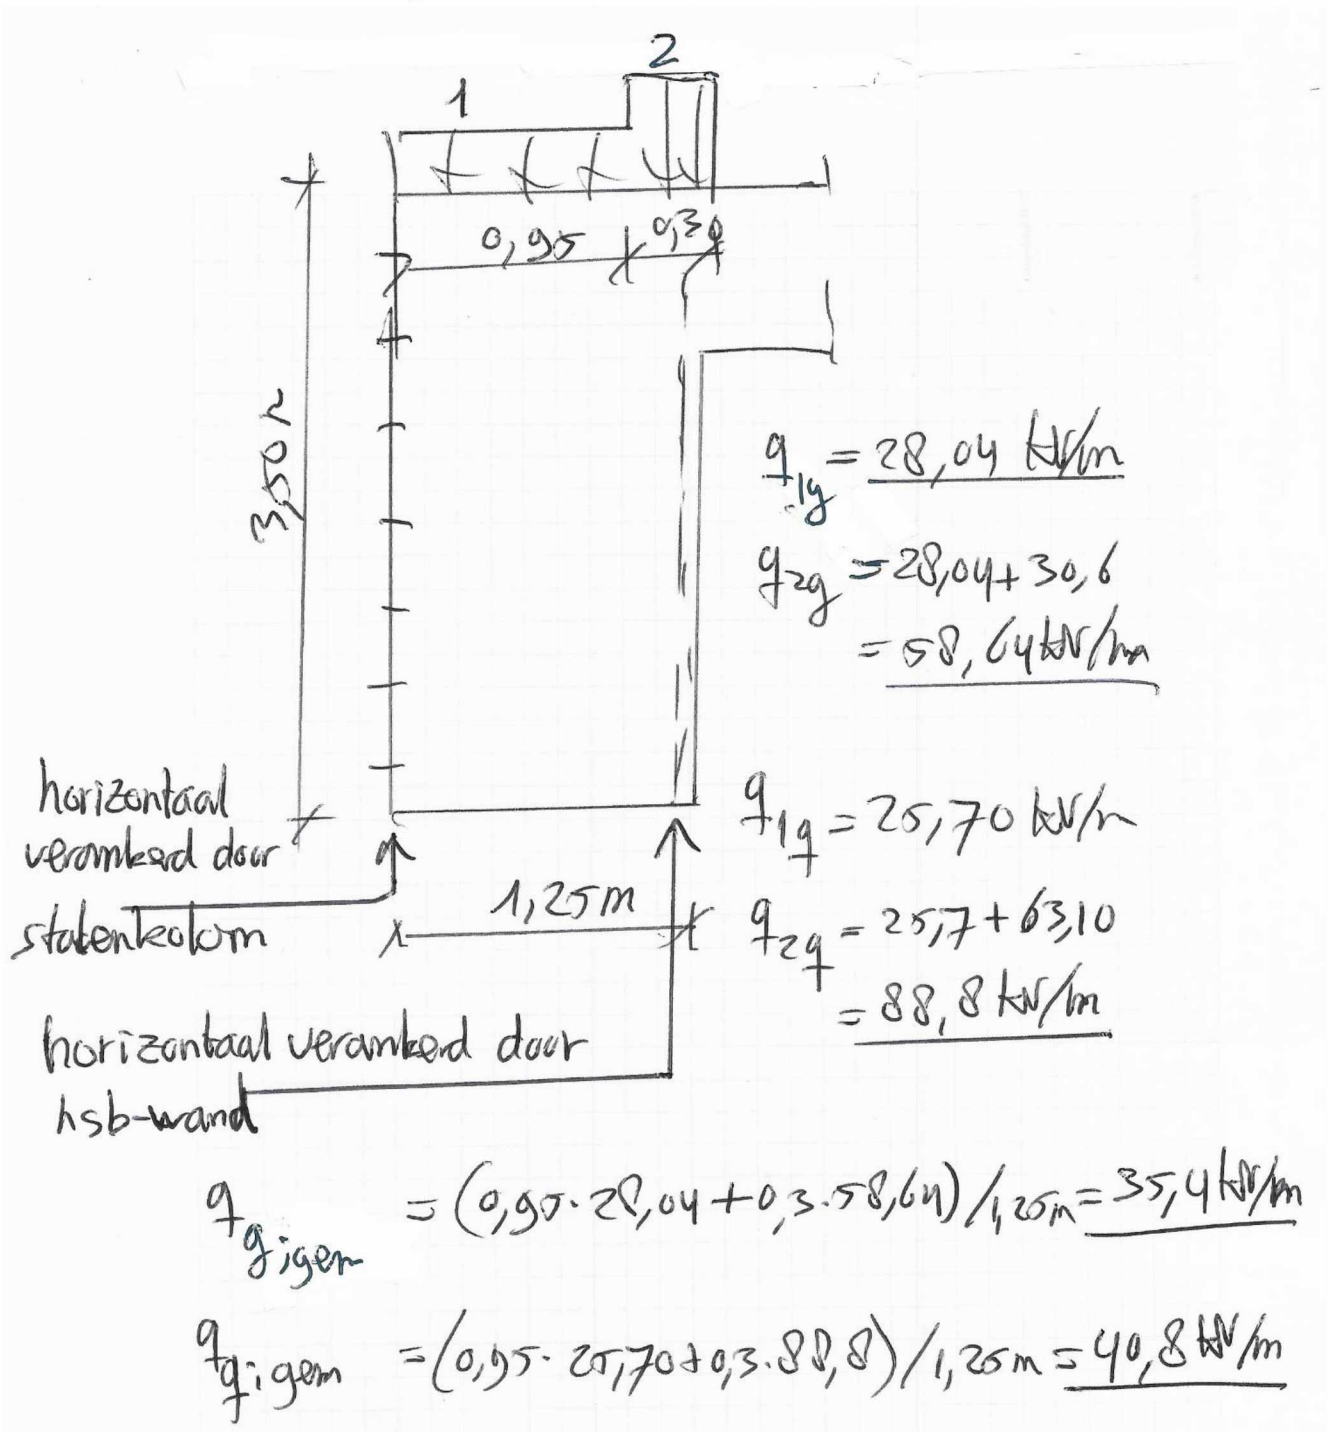 2
1
0,95 0,30
3,50 m
q1g = 28,04 kN/m
q2g = 28,04+30,6
= 58,64 kN/m
horizontaal
verankerd door
stalenkolom
1,25m
q1q = 25,70 kN/m
q2q = 25,7+63,10
= 88,8 kN/m
horizontaal verankerd door
hsb-wand
qg;gem = (0,95·28,04+0,3·58,64)/1,25m = 35,4 kN/m
qq;gem = (0,95·25,70+0,3·88,8)/1,25m = 40,8 kN/m